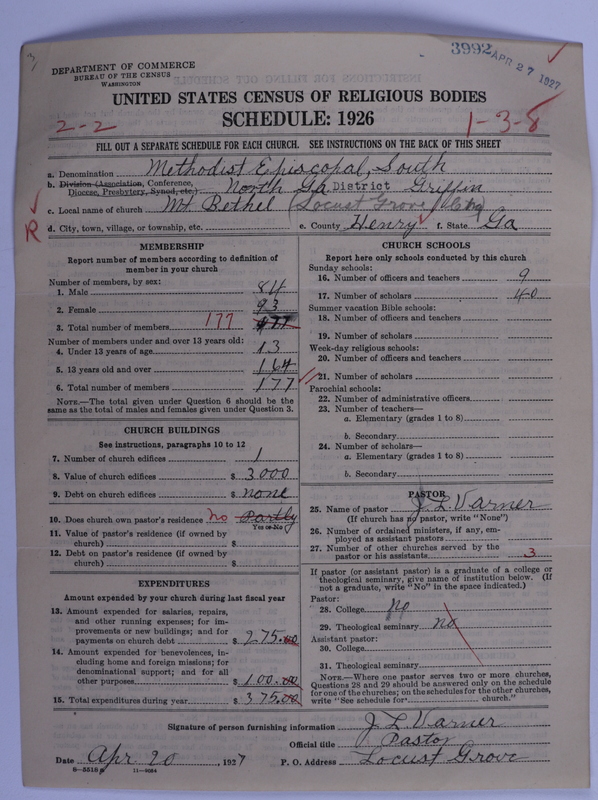 3992 APR 27 1927
DEPARTMENT OF COMMERCE
BUREAU OF THE CENSUS
WASHINGTON
UNITED STATES CENSUS OF RELIGIOUS BODIES
SCHEDULE: 1926
2-2
1-3-8
FILL OUT A SEPARATE SCHEDULE FOR EACH CHURCH. SEE INSTRUCTIONS ON THE BACK OF THIS SHEET
a. Denomination Methodist Episcopal, South
b. Division (Association, Conference, Diocese, Presbytery, Synod, etc.) North Ga District Griffin
c. Local name of church Mt Bethel (Locust Grove
d. City, town, village, or township, etc.
e. County Henry f. State Ga
R
MEMBERSHIP
Report number of members according to definition of
member in your church
Number of members, by sex:
1. Male 84
2. Female 93
3. Total number of members 177 177
Number of members under and over 13 years old:
4. Under 13 years of age 13
5. 13 years old and over 164
6. Total number of members 177
NOTE.—The total given under Question 6 should be
same as the total of males and females given under Question 3.
CHURCH BUILDINGS
See instructions, paragraphs 10 to 12
7. Number of church edifices 1
8. Value of church edifices $ 3000
9. Debt on church edifices $ none
10. Does church own pastor's residence no Partly
Yes or No
11. Value of pastor's residence (if owned by
church) $
12. Debt on pastor's residence (if owned by
church) $
EXPENDITURES
Amount expended by your church during last fiscal year
13. Amount expended for salaries, repairs,
and other running expenses; for im-
provements or new buildings; and for
payments on church debt $ 275.00
14. Amount expended for benevolences, in-
cluding home and foreign missions; for
denominational support; and for all
other purposes $ 100.00
15. Total expenditures during year $ 375.00
CHURCH SCHOOLS
Report here only schools conducted by this church
Sunday schools:
16. Number of officers and teachers 9
17. Number of scholars 40
Summer vacation Bible schools:
18. Number of officers and teachers
19. Number of scholars
Week-day religious schools:
20. Number of officers and teachers
21. Number of scholars
Parochial schools:
22. Number of administrative officers
23. Number of teachers—
a. Elementary (grades 1 to 8)
b. Secondary
24. Number of scholars—
a. Elementary (grades 1 to 8)
b. Secondary
PASTOR
25. Name of pastor J. L. Varner
(If church has no pastor, write "None")
26. Number of ordained ministers, if any, em-
ployed as assistant pastors
27. Number of other churches served by the
pastor or his assistants 3
If pastor (or assistant pastor) is a graduate of a college or
theological seminary, give name of institution below. (If
not a graduate, write "No" in the space indicated.)
Pastor:
28. College No
29. Theological seminary no
Assistant pastor:
30. College
31. Theological seminary
NOTE.—Where one pastor serves two or more churches,
Questions 28 and 29 should be answered only on the schedule
for one of the churches; on the schedules for the other churches,
write "See schedule for church."
Signature of person furnishing information J. L. Varner
Official title Pastor
Date Apr 20, 1927 P. O. Address Locust Grove
8—5518 11—9084